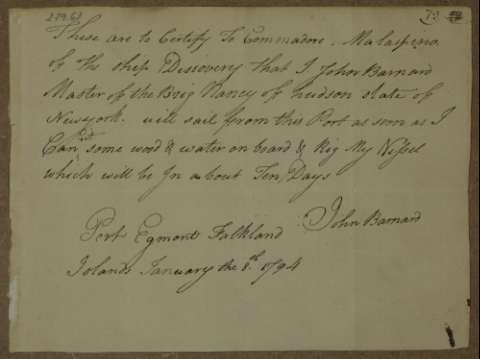 These are to Certify To Commadore. Malaspina
of the ship Discovery that I John Barnard
Master of the Brig Nancy of hudson state of
Newyork. will sail ffrom this Port as soon as I
Can some wood & water on board & Rig My Vessel
which will be Jn about Ten Days
John Barnard
Port Egmont Falkland
Islands January the 8th 1794